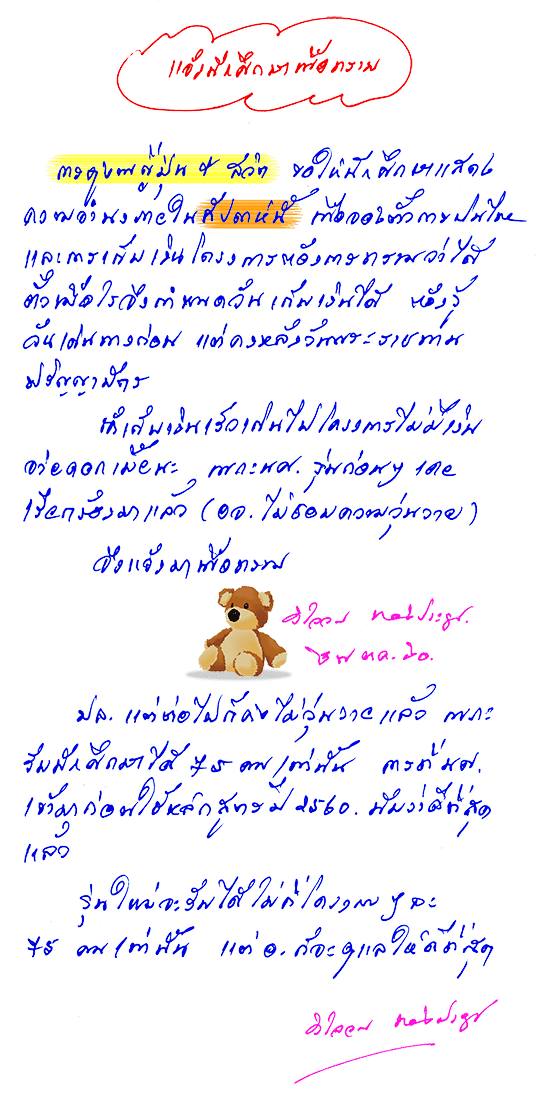 แจ้งนักศึกษาเพื่อทราบ
การดูงานญี่ปุ่น & สวิต ขอให้นักศึกษาแสดง
ความจำนงภายในสัปดาห์นี้ เพื่อจองตั๋วการบินไทย
และการเก็บเงินโครงการหลังการทราบว่าได้
ตั๋วเมื่อไรจึงกำหนดวันเก็บเงินได้ หลังรู้
วันเดินทางก่อน แต่คงหลังวันพระราชทาน
ปริญญาบัตร
ถ้าเก็บเงินเร็วเกินไปโครงการไม่มีเงิน
จ่ายดอกเบี้ยนะ เพราะนศ. รุ่นก่อนๆ เคย
เรียกร้องมาแล้ว (อจ. ไม่ชอบความวุ่นวาย)
จึงแจ้งมาเพื่อทราบ
30 ตค. 60.
ปล. แต่ต่อไปก็คงไม่วุ่นวายแล้ว เพราะ
รับนักศึกษาได้ 75 คนเท่านั้น การที่นศ.
เข้ามาก่อนใช้หลักสูตรปี 2560. นับว่าดีที่สุด
แล้ว
รุ่นใหม่จะรับได้ไม่กี่โครงการๆ ละ
75 คนเท่านั้น แต่ อ. ก็จะดูแลให้ดีที่สุด